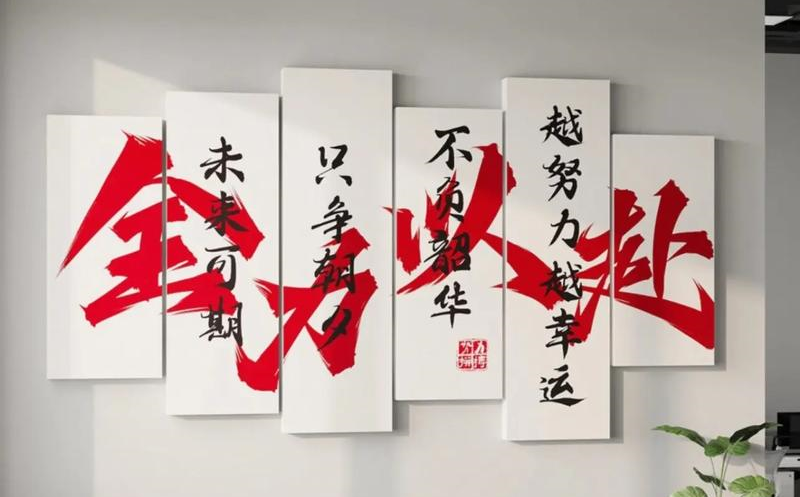 全力以赴
未来可期
只争朝夕
不负韶华
越努力越幸运